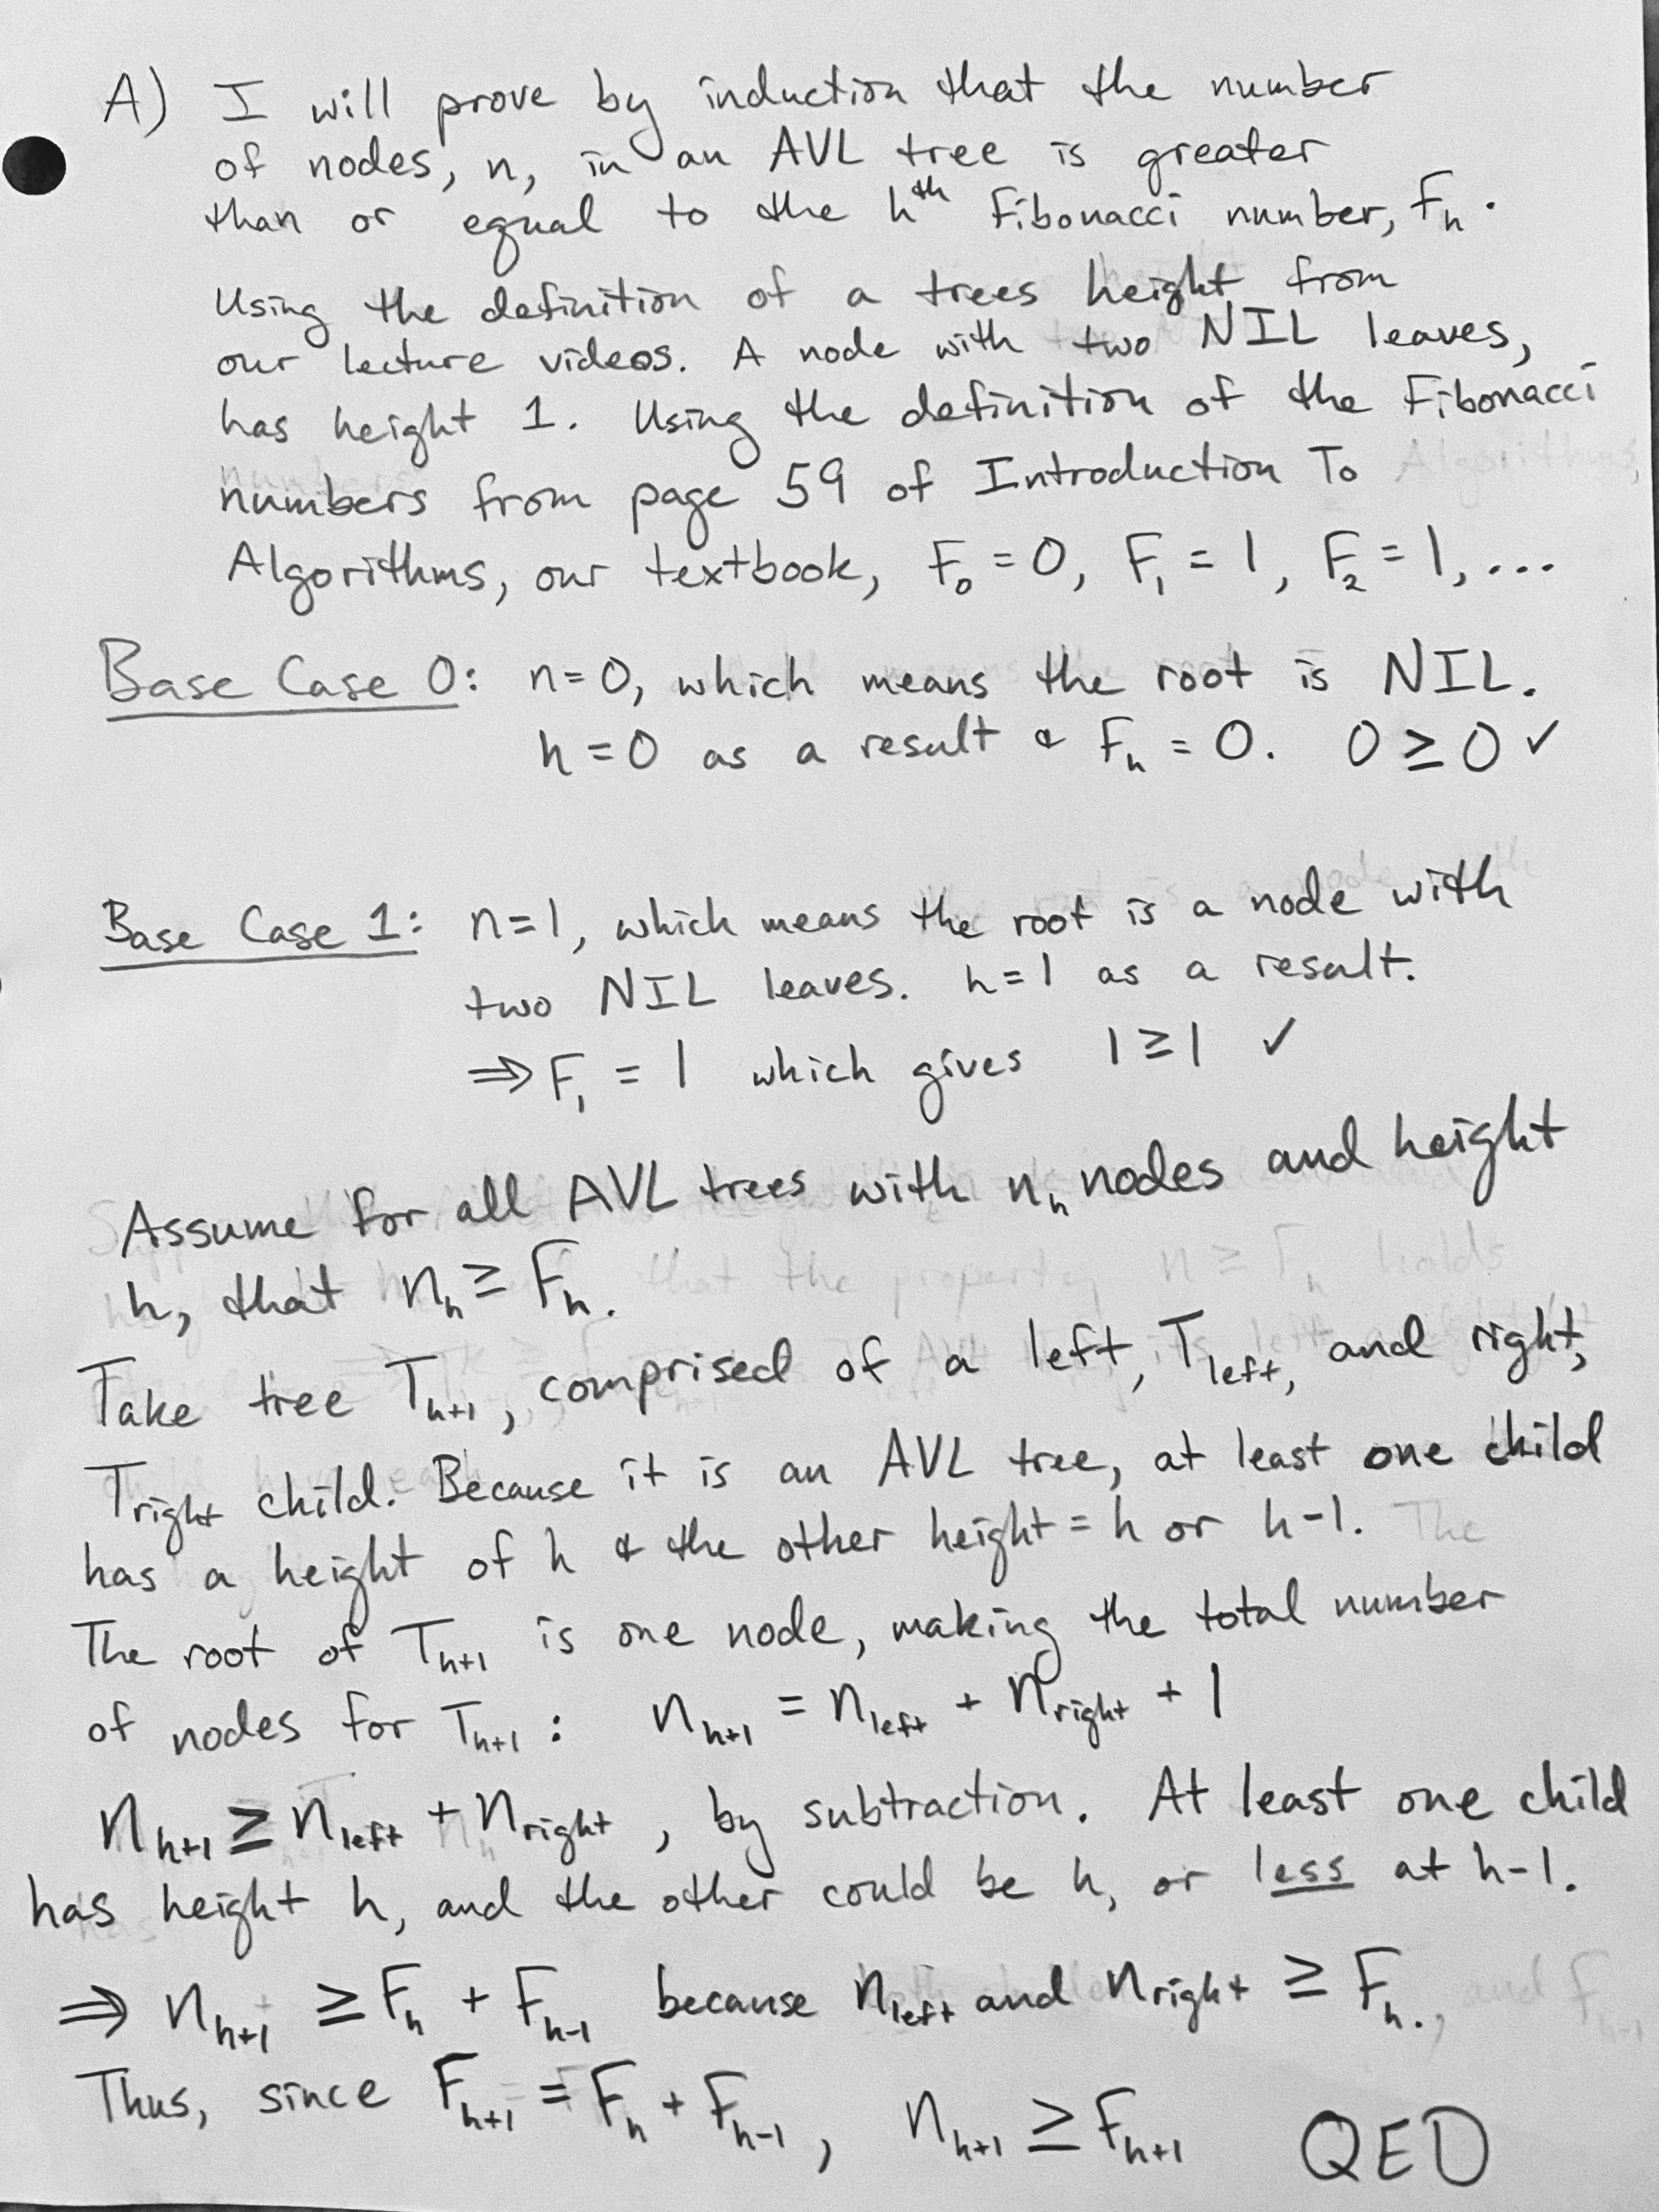 A) I will prove by induction that the number
of nodes, n, in an AVL tree is greater
than or equal to the hᵗʰ Fibonacci number, Fₕ.
Using the definition of a trees height from
our lecture videos. A node with two NIL leaves,
has height 1. Using the definition of the Fibonacci
numbers from page 59 of Introduction To
Algorithms, our textbook, F₀ = 0, F₁ = 1, F₂ = 1, ...
Base Case 0: n=0, which means the root is NIL.
h=0 as a result & Fₕ = 0. 0 ≥ 0 ✓
Base Case 1: n=1, which means the root is a node with
two NIL leaves. h=1 as a result.
⇒ F₁ = 1 which gives 1≥1 ✓
Assume for all AVL trees with nₕ nodes and height
h, that nₕ ≥ Fₕ.
Take tree Tₕ₊₁, comprised of a left, T_left, and right,
T_right child. Because it is an AVL tree, at least one child
has a height of h & the other height = h or h-1.
The root of Tₕ₊₁ is one node, making the total number
of nodes for Tₕ₊₁ : nₕ₊₁ = n_left + n_right + 1
nₕ₊₁ ≥ n_left + n_right, by subtraction. At least one child
has height h, and the other could be h, or less at h-1.
⇒ nₕ₊₁ ≥ Fₕ + Fₕ₋₁ because n_left and n_right ≥ Fₕ.
Thus, since Fₕ₊₁ = Fₕ + Fₕ₋₁, nₕ₊₁ ≥ Fₕ₊₁ QED